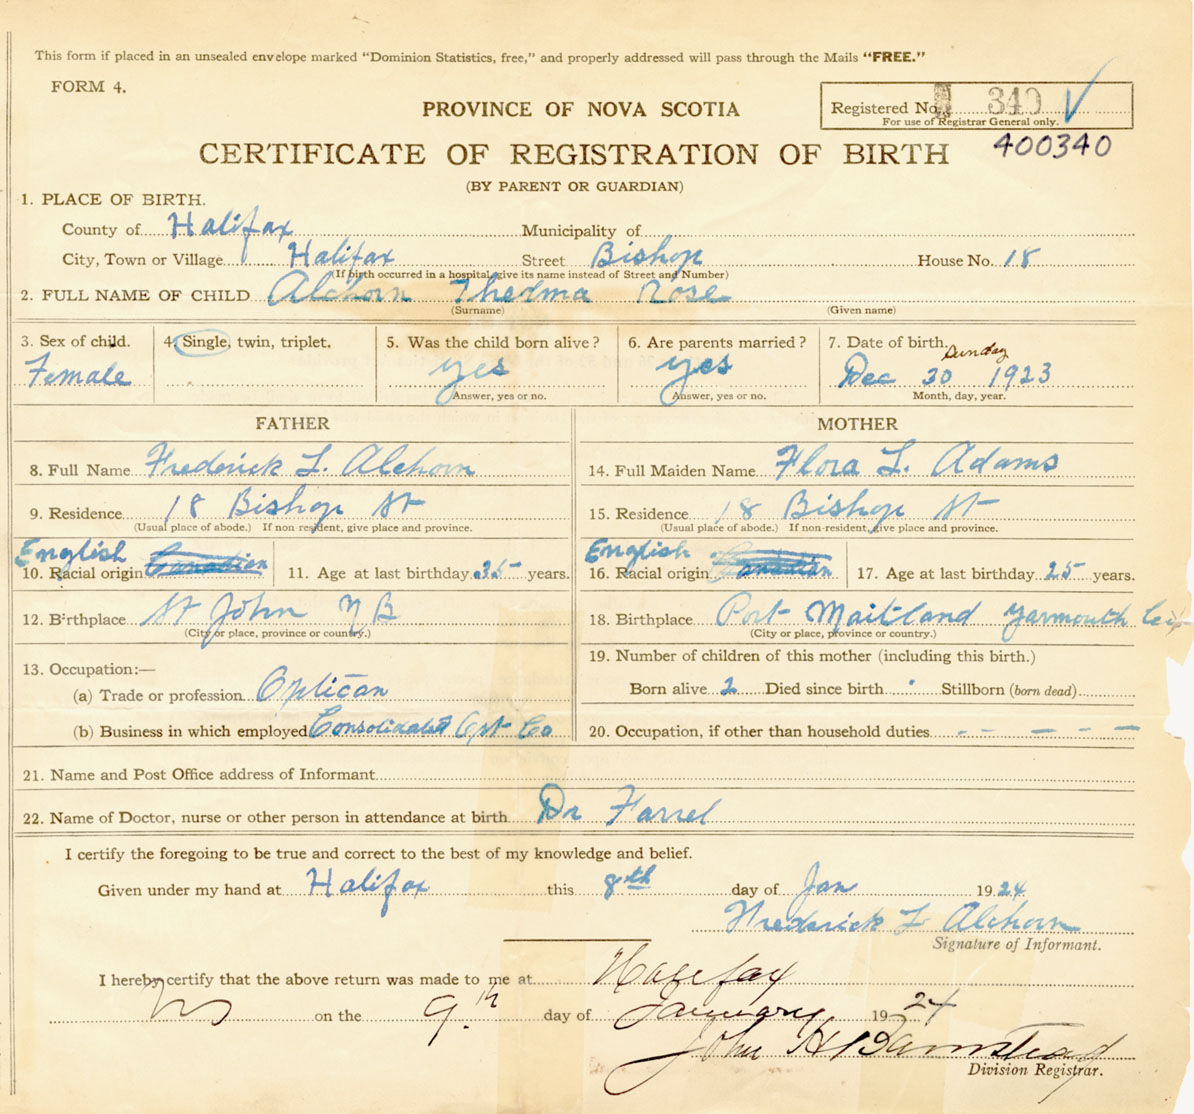 This form if placed in an unsealed envelope marked "Dominion Statistics, free," and properly addressed will pass through the Mails "FREE."
FORM 4.
Registered No. 340
For use of Registrar General only.
PROVINCE OF NOVA SCOTIA
400340
CERTIFICATE OF REGISTRATION OF BIRTH
(BY PARENT OR GUARDIAN)
1. PLACE OF BIRTH.
County of Halifax Municipality of
City, Town or Village Halifax Street Bishop House No. 18
(If birth occurred in a hospital, give its name instead of Street and Number)
2. FULL NAME OF CHILD Alchorn Thelma Rose
(Surname) (Given name)
3. Sex of child. 4. Single, twin, triplet. 5. Was the child born alive? 6. Are parents married? 7. Date of birth. Sunday
Female yes yes Dec 30 1923
Answer, yes or no. Answer, yes or no. Month, day, year.
FATHER MOTHER
8. Full Name Frederick L. Alchorn 14. Full Maiden Name Flora L. Adams
9. Residence 18 Bishop St 15. Residence 18 Bishop St
(Usual place of abode.) If non resident, give place and province. (Usual place of abode.) If non-resident, give place and province.
English English
10. Racial origin Canadian 11. Age at last birthday 35 years. 16. Racial origin Canadian 17. Age at last birthday 25 years.
12. Birthplace St John N B 18. Birthplace Port Maitland Yarmouth
(City or place, province or country.) (City or place, province or country.)
13. Occupation:— 19. Number of children of this mother (including this birth.)
(a) Trade or profession Optican Born alive 2 Died since birth Stillborn (born dead)
(b) Business in which employed Consolidated Opt Co 20. Occupation, if other than household duties - - — - - —
21. Name and Post Office address of Informant
22. Name of Doctor, nurse or other person in attendance at birth Dr Farrel
I certify the foregoing to be true and correct to the best of my knowledge and belief.
Given under my hand at Halifax this 8th day of Jan 1924
Frederick L Alchorn
Signature of Informant.
I hereby certify that the above return was made to me at Halifax
on the 9th day of January 1924
John H Barnstead
Division Registrar.